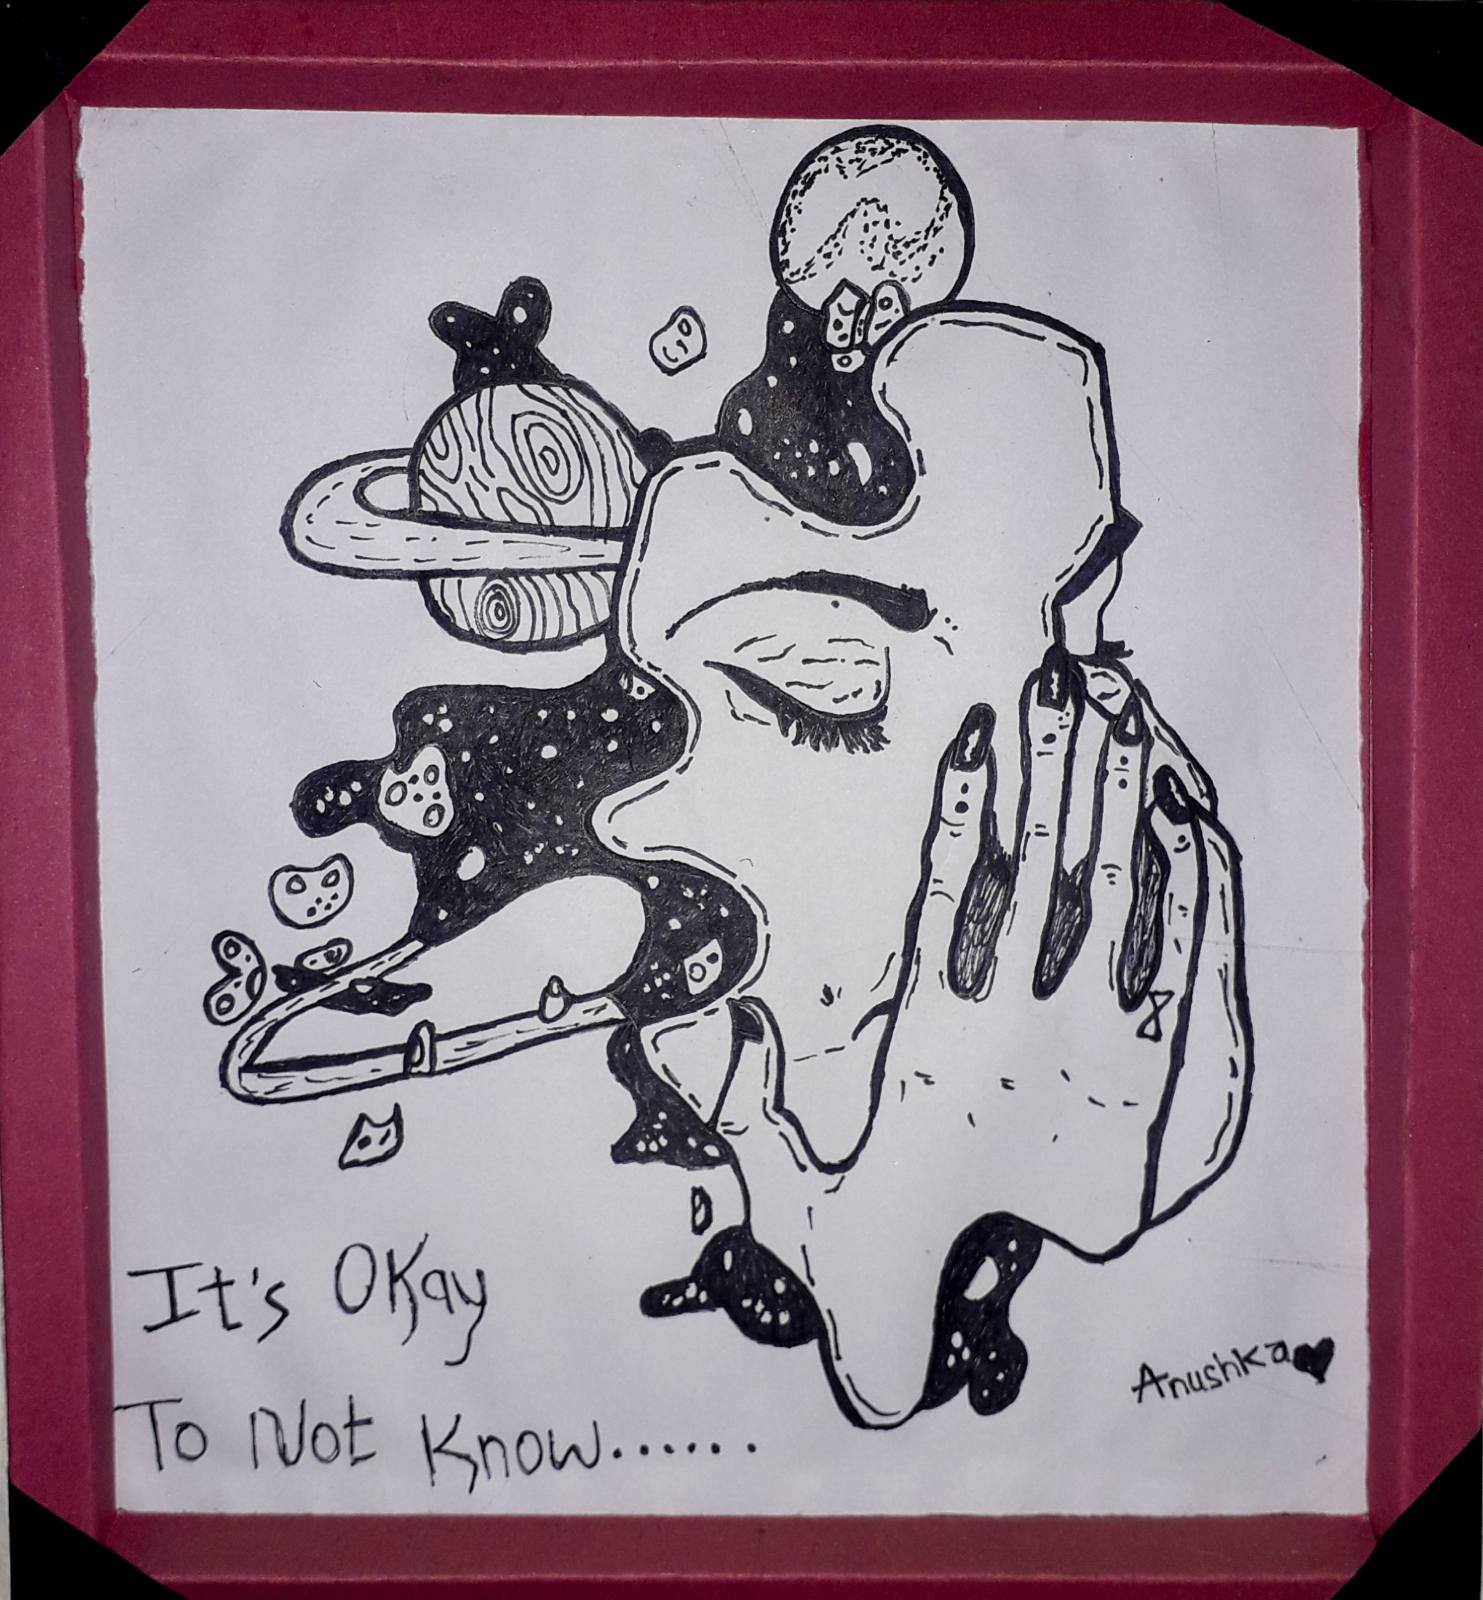 It's Okay
To Not Know......
Anushka